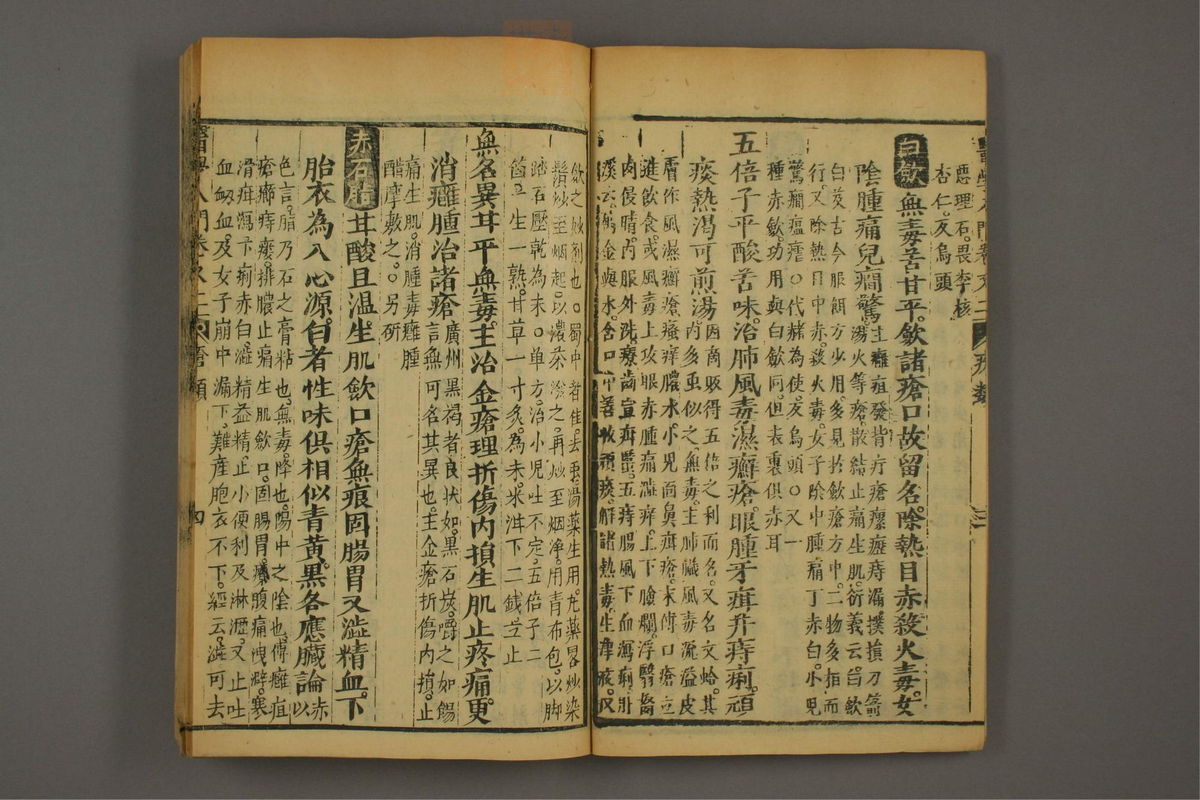 醫學入門卷之二
惡理石。畏李核
杏仁。反烏頭
白斂無毒苦甘平。斂諸瘡口故留名。除熱目赤殺火毒。女
陰腫痛兒癎驚主癰疽發背疔瘡瘰癧痔漏。撲損刀箭
湯火等瘡。散結止痛生肌。衍義云。白斂
白芨古今服餌方少用。多見於斂瘡方中。二物多相而
行。又除熱目中赤。殺火毒。女子陰中腫痛丁赤白。小兒
驚癎瘟瘧。○代赭為使。反烏頭。○又一
種赤斂。功用與白斂同。但表裏俱赤耳
五倍子平酸苦味。治肺風毒濕癬瘡。眼腫牙疳并痔痢。頑
痰熱渴可煎湯因商販得五倍之利而名。又名文蛤。其
內多虫似之無毒。主肺臟風毒流溢皮
膚作風濕癬瘡。瘙痒膿水。小兒面鼻疳瘡。末傅口瘡立
進飲食。或風毒上攻眼赤腫痛澁痒。上下瞼爛。浮瞖胬
肉侵睛。內服外洗。療齒宣疳䘌。五痔腸風下血瀉痢。肚
溪云。屬金與水。含口中善收頑痰。解諸熱毒。生津液。又
斂之敏劑也。○蜀中者佳。去虫。湯藥生用。丸藥略炒。染
鬚炒至烟起。以濃茶潑之。再炒至烟淨。用青布包。以脚
踏石壓乾為末。○單方。治小兒吐不定。五倍子二
箇一生一熟。甘草一寸炙。為末。米泔下二錢立止
無名異甘平無毒。主治金瘡理折傷內損生肌止疼痛。更
消癰腫治諸瘡廣州黑褐者良。狀如黑石炭。嚼之如餳
言無可名其異也。主金瘡折傷內損。止
痛生肌。消腫毒癰腫
醋摩敷之。○另研
赤石脂甘酸且溫。生肌斂口瘡無痕。固腸胃又澁精血。下
胎衣為入心源。白者性味俱相似。青黃黑各應臟論赤以
色言。脂乃石之膏粘也。無毒。降也。陽中之陰也。傅癰疽
瘡癤痔瘻。排膿止痛生肌斂口。固腸胃療腹痛洩澼。寒
滑疳瀉下痢赤白。澁精益精。止小便利及淋瀝。又止吐
血衂血。及女子崩中漏下。難産胞衣不下。經云。澁可去
醫學入門卷之二
瘡類
四